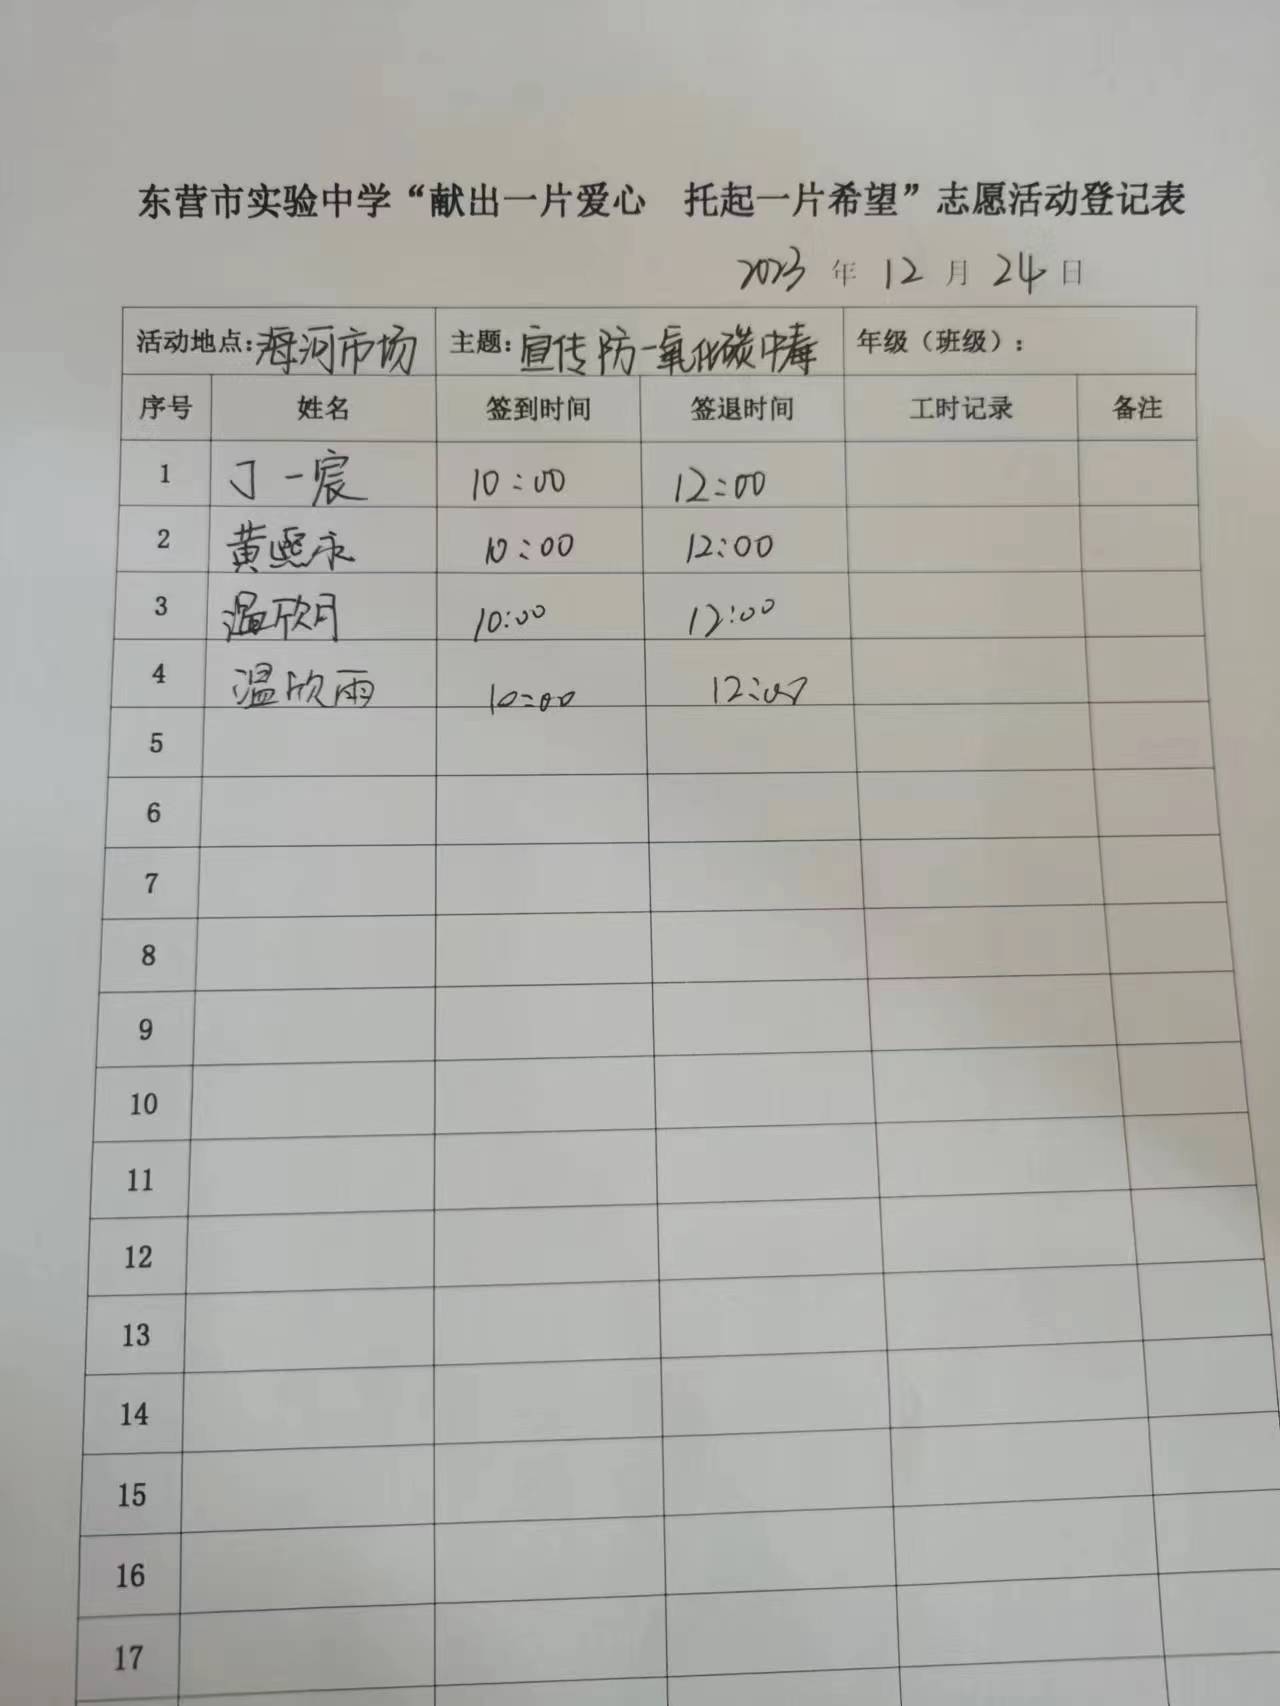 东营市实验中学“献出一片爱心 托起一片希望”志愿活动登记表
2023 年 12 月 24 日
活动地点：海河市场 主题：宣传防一氧化碳中毒 年级（班级）：
序号 姓名 签到时间 签退时间 工时记录 备注
1 丁一宸 10：00 12：00
2 黄熙永 10：00 12：00
3 温欣月 10：00 12：00
4 温欣雨 10：00 12：00
5
6
7
8
9
10
11
12
13
14
15
16
17